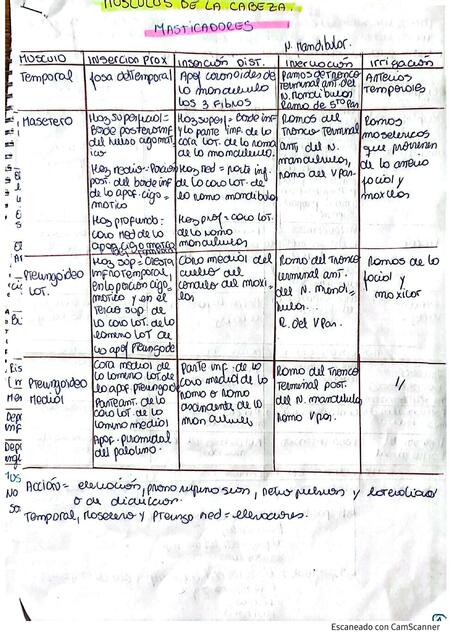 MUSCULOS DE LA CABEZA.
MASTICADORES
N. Mandibular.
MUSCULO
Insercion Prox
Inserción Dist.
Inervación
Irrigación
Temporal
fosa del temporal
Apof coronoides de
la mandibula
los 3 fibras
Ramos del tronco
Terminal ant. del
N. Mandibular
Ramo de 5to Par
Arterias
Temporales
Masetero
Haz superficial =
Borde posteroinf
del hueso cigomat-
ico
Haz medio = Porcion
post. del borde inf
de la apof. cigo-
matica
Haz profundo =
cara med de la
apof cigomatica
Haz superf = borde inf
y la parte inf. de la
cara lat. de la rama
de la mandibula.
Haz med = parte inf.
de la cara lat. de
la rama mandibula
Haz prof = cara lat.
de la rama
mandibula
Ramos del
Tronco Terminal
ant. del N.
mandibular,
ramo del V par.
Ramos
masetericas
que provienen
de la arteria
facial y
maxilar
Pterigoideo
LAT.
Haz sup = Cresta
infratemporal,
en la porcion cigo-
matica y en el
Tercio sup de
la cara lat. de la
lamina lat de
la apof Pterigoide
Cara medial del
cuello del
condilo del maxi-
lar
Ramo del Tronco
terminal ant.
del N. Mandi-
bular.
R. del V Par.
Ramos de la
facial y
maxilar
Pterigoideo
Medial
Cara medial de
la lamina lat. de
la apof. pterigoid
Parte ant. de la
cara lat. de la
lamina medial
Apof. piramidal
del palatino.
Parte inf. de la
cara medial de la
rama o ramo
ascendente de la
mandibula
Ramo del Tronco
Terminal post.
del N. mandibular
Ramo V par.
Acción = elevación, prono supino sion, retro pulsion y lateralidad
o de diduccion.
Temporal, Masetero y Pterigo med = elevadores.
Escaneado con CamScanner